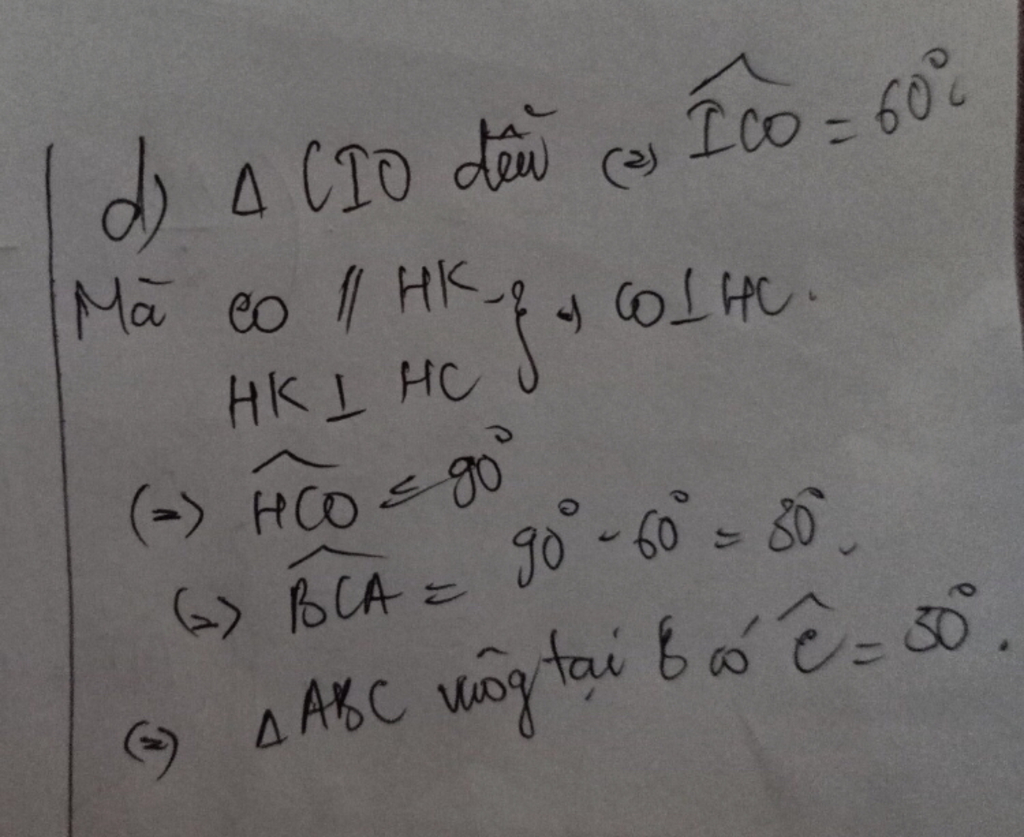 d) Δ CIO đều (=) ICO = 60°.
Mà CO // HK } → CO ⊥ HC.
HK ⊥ HC
(=) HCO = 90°
(=) BCA = 90° - 60° = 30°.
(=) Δ ABC vuông tại B có Ĉ = 30°.